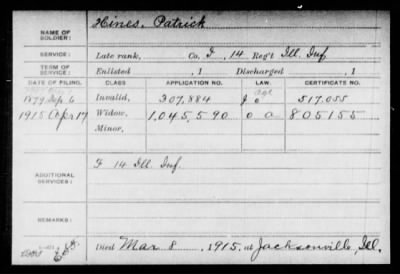 NAME OF SOLDIER: Hines, Patrick
SERVICE: Late rank, Co. F, 14 Reg't Ill. Inf.
TERM OF SERVICE: Enlisted , 1 Discharged , 1
DATE OF FILING. CLASS APPLICATION NO. LAW. CERTIFICATE NO.
age
1879 Sep. 6 Invalid, 307,884 517.055
1915 Apr 17 Widow, 1,045,590 805155
Minor,
F 14 Ill. Inf.
ADDITIONAL SERVICES:
REMARKS:
Died Mar 8, 1915, at Jacksonville, Ill.